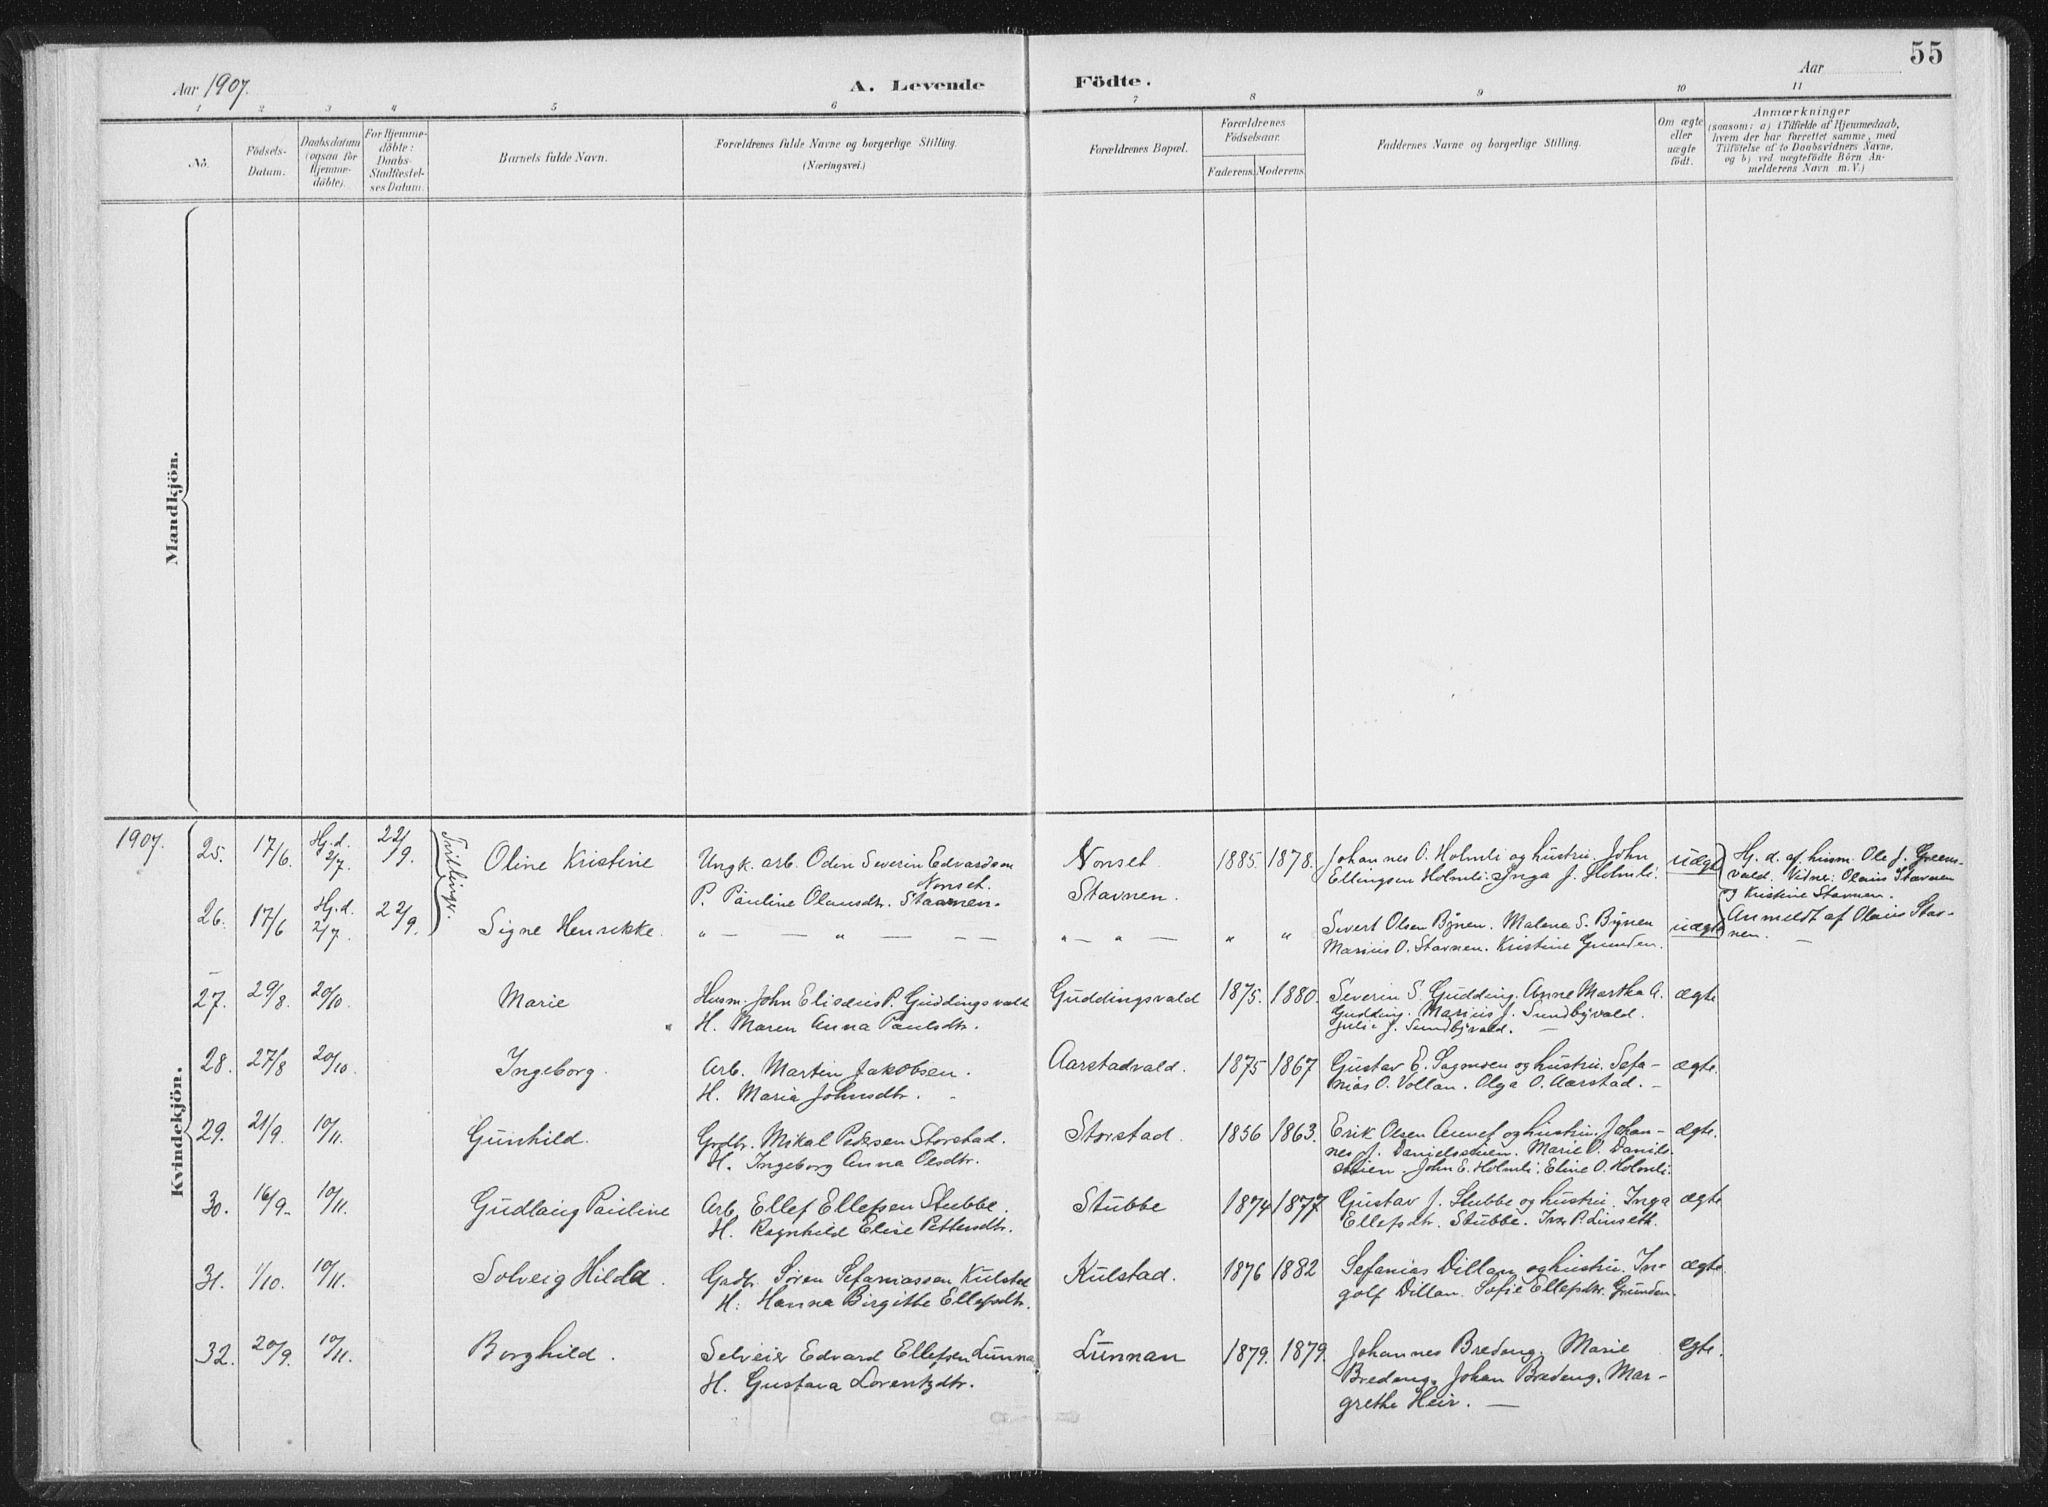 55
Aar 1907.
A. Levende Födte.
Aar
1 2 3 4 5 6 7 8 9 10 11
No.
Födsels-
Datum.
Daabsdatum
(ogsaa for
Hjemme-
döbte).
For Hjemme-
döbte:
Daabs-
Stadfestel-
ses Datum.
Barnets fulde Navn.
Forældrenes fulde Navne og borgerlige Stilling.
(Næringsvei.)
Forældrenes Bopæl.
Forældrenes
Födselsaar.
Faderens. Moderens.
Faddernes Navne og borgerlige Stilling.
Om ægte
eller
uægte
födt.
Anmærkninger
(saasom: a) i Tilfælde af Hjemmedaab,
hvem der har forrettet samme, med
Tilföielse af to Daabsvidners Navne,
og b) ved uægtefödte Börn An-
melderens Navn m. V.)
Mandkjön.
Kvindekjön.
1907.
Tvillinger.
25. 17/6. Hj. d. 2/7. 22/9. Oline Kristine
Ungk. arb. Oden Severin Edvardsen
Nonset.
P. Pauline Olausdtr. Stavnen.
Nonset
Stavnen.
1885. 1878.
Johannes O. Holmli og hustru. John
Ellingsen Holmli. Inga J. Holmli.
uægte
Hj. d. af husm. Ole J. Grøns-
vald. Vidne: Olaus Stavnen
og Kristine Stavnen.
26. 17/6 Hj. d. 2/7. 22/9. Signe Henrikke.
„ — — „ — — „ — „ — „ „
Sivert Olsen Bÿnen. Malena S. Bÿnen
Marius O. Stavnen. Kristine Grunden.
uægte
Anmeldt af Olaus Stav-
nen. —
27. 29/8. 20/10. Marie
Husm. John Elisæus P. Guddingsvald
H. Maren Anna Paulsdtr.
Guddingsvald
1875. 1880.
Severin S. Gudding. Anne Martha A.
Gudding. Marius J. Sundbÿvald.
Julie J. Sundbÿvald. —
ægte
28. 27/8 20/10. Ingeborg.
Arb. Martin Jakobsen.
H. Maria Johnsdtr.
Aarstadvald.
1875 1867
Gustav E. og hustru. Sefa-
nias O. Vollan. Olga O. Aarstad. —
ægte.
29. 21/9. 10/11. Gunhild.
Grdbr. Mikal Pedersen Storstad.
H. Ingeborg Anna Olsdtr.
Storstad.
1856 1863.
Erik Olsen og hustru. Johan-
nes J. Danielsstuen. Marie O. Daniels-
stuen. John E. Holmli. Eline O. Holmli.
ægte.
30. 16/9. 10/11. Gudlaug Pauline
Arb. Ellef Ellefsen Stubbe.
H. Ragnhild Elise Pettersdtr.
Stubbe
1874 1877
Gustav J. Stubbe og hustru. Inga
Ellefsdtr. Stubbe. Iver P. Linseth.
ægte
31. 1/10. 10/11. Solveig Hilda.
Grdbr. Sören Sefaniassen Kulstad
H. Hanna Birgitte Ellefsdtr.
Kulstad.
1876 1882
Sefanias Dillan og hustru. In-
golf Dillan. Sofie Ellefsdtr. Grunden.
ægte
32. 20/9. 10/11. Borghild.
Selveier Edvard Ellefsen Lunnan
H. Gustava Lorentzdtr.
Lunnan
1879. 1879.
Johannes Bredeng. Marie
Bredeng. Johan Bredeng. Mar-
grethe Heir. —
egte.